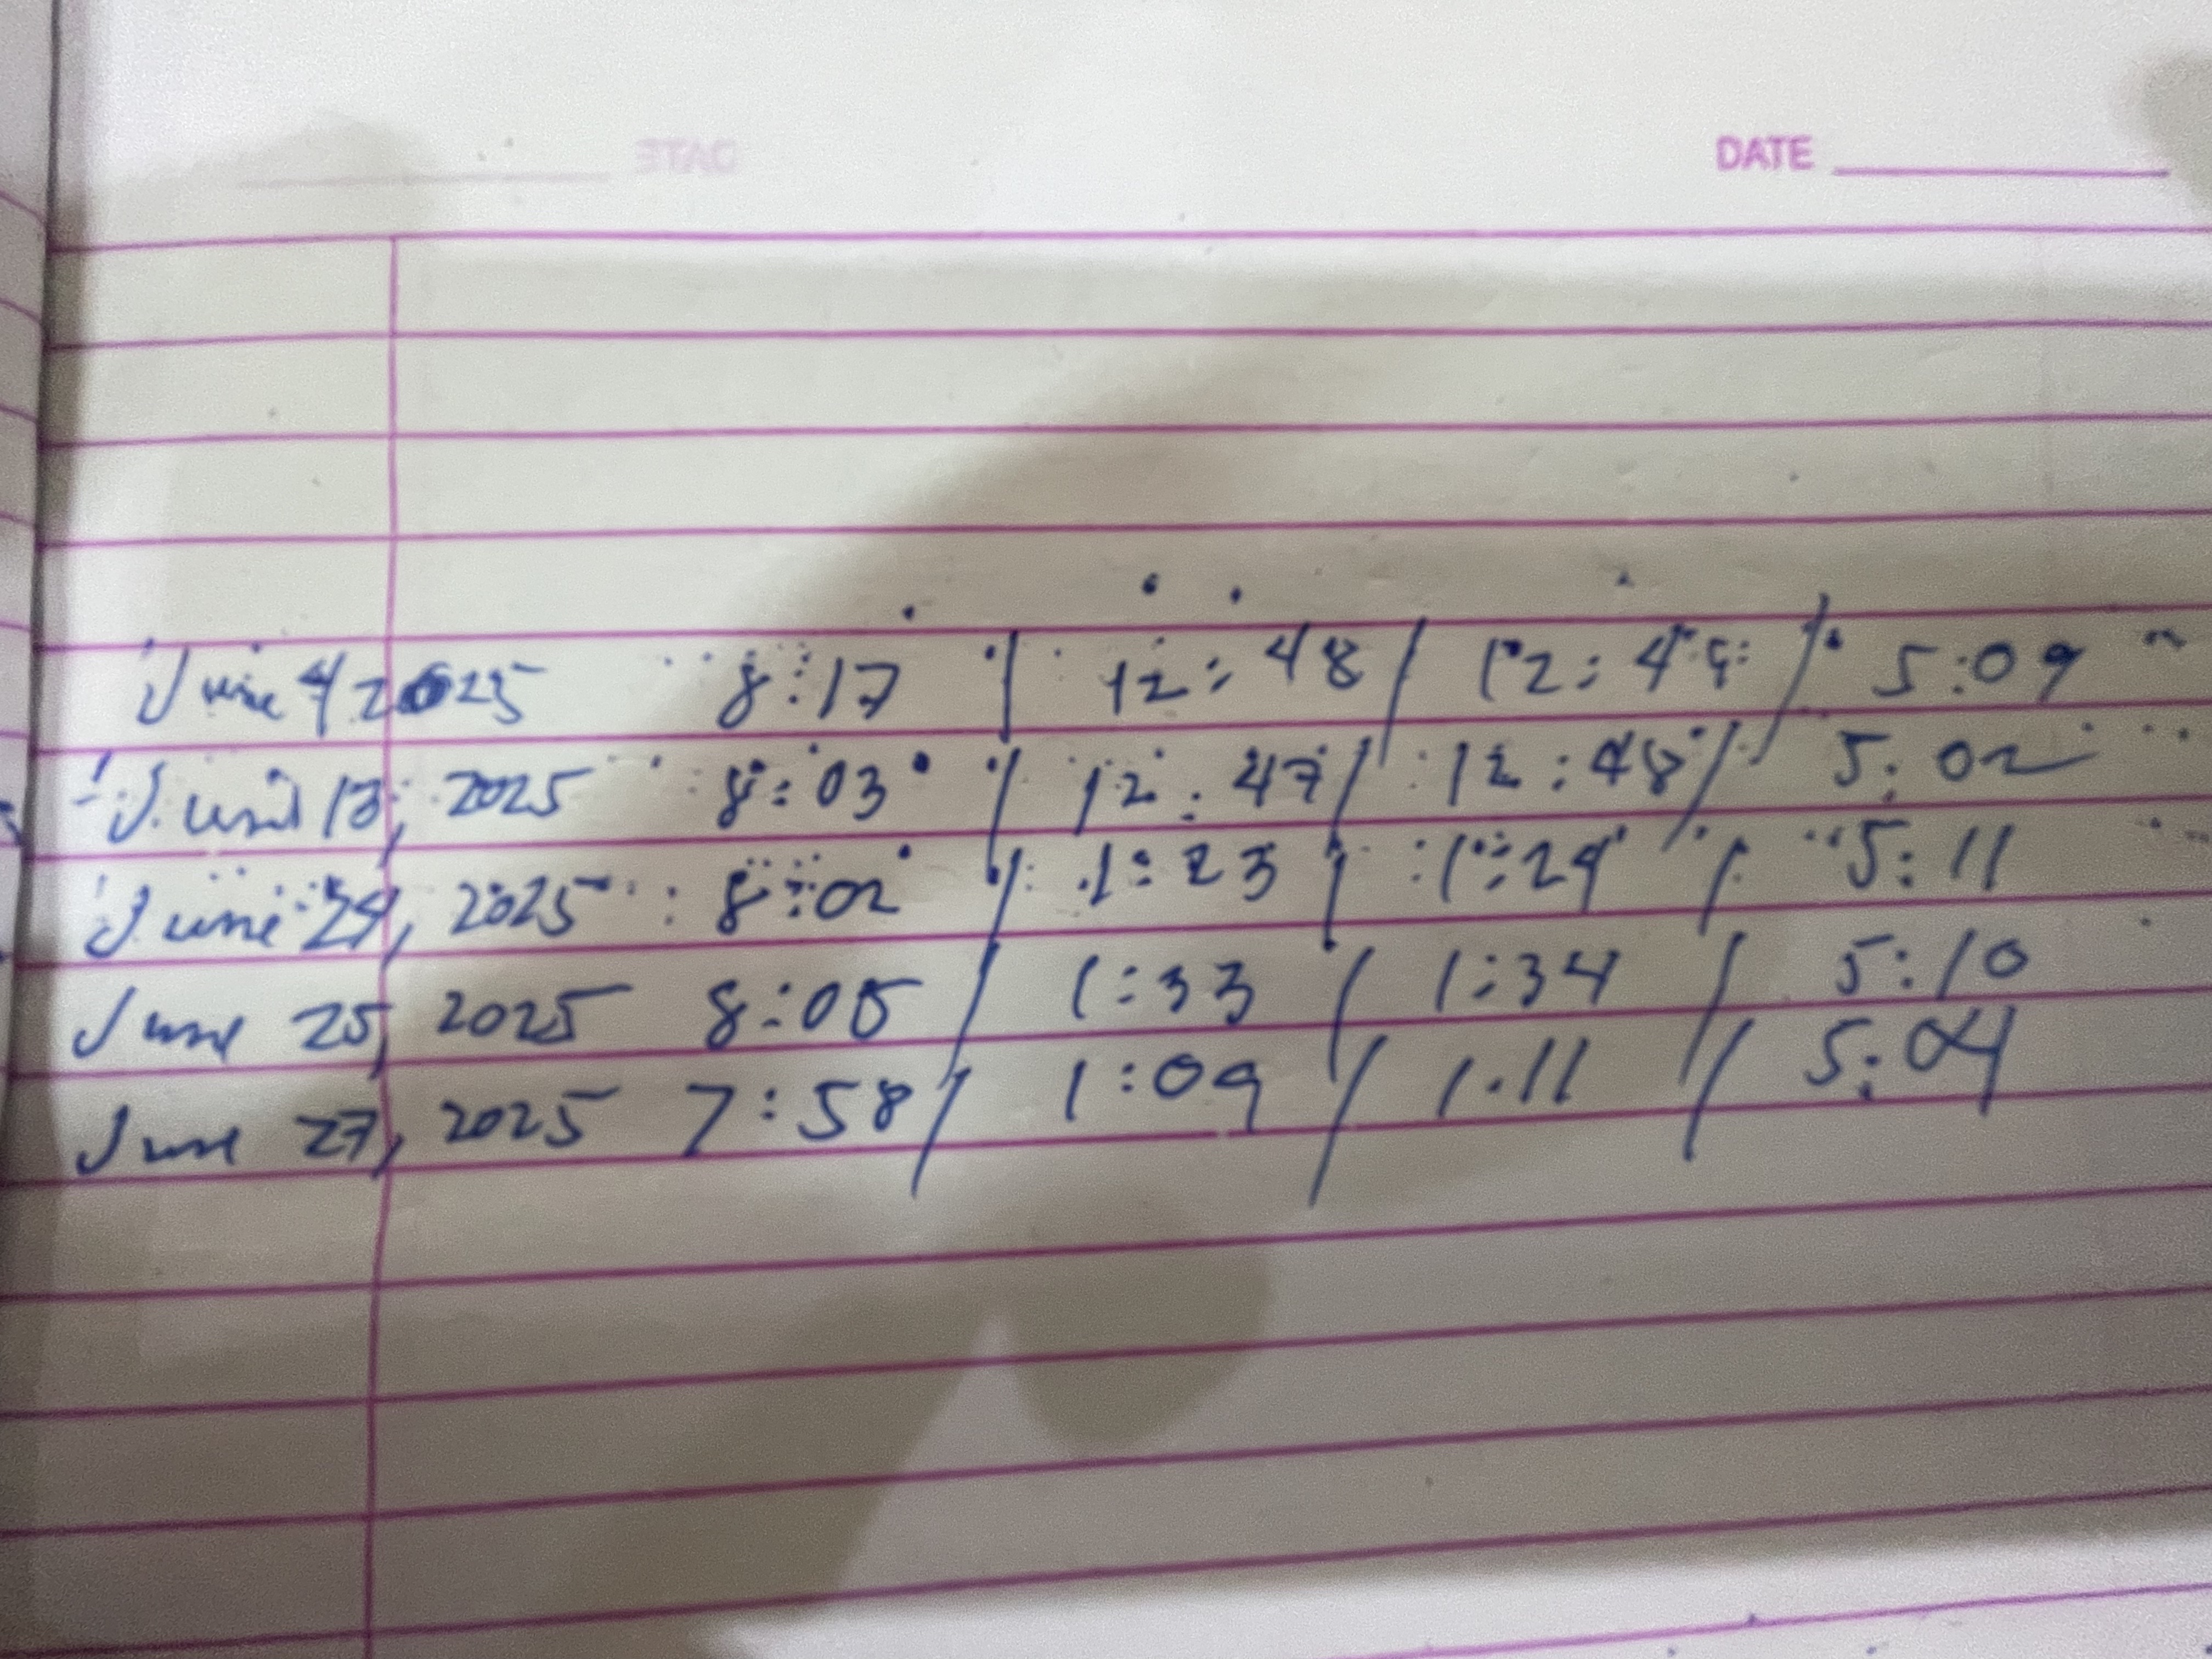 DATE
June 4 2025 8:17 | 12:48 / 12:49 / 5:09
June 13, 2025 8:03 / 12:47 / 12:48 / 5:02
June 24, 2025 8:02 / 1:23 | 1:24 / 5:11
June 25, 2025 8:05 / 1:33 / 1:34 / 5:10
June 27, 2025 7:58 / 1:09 / 1.11 / 5:04